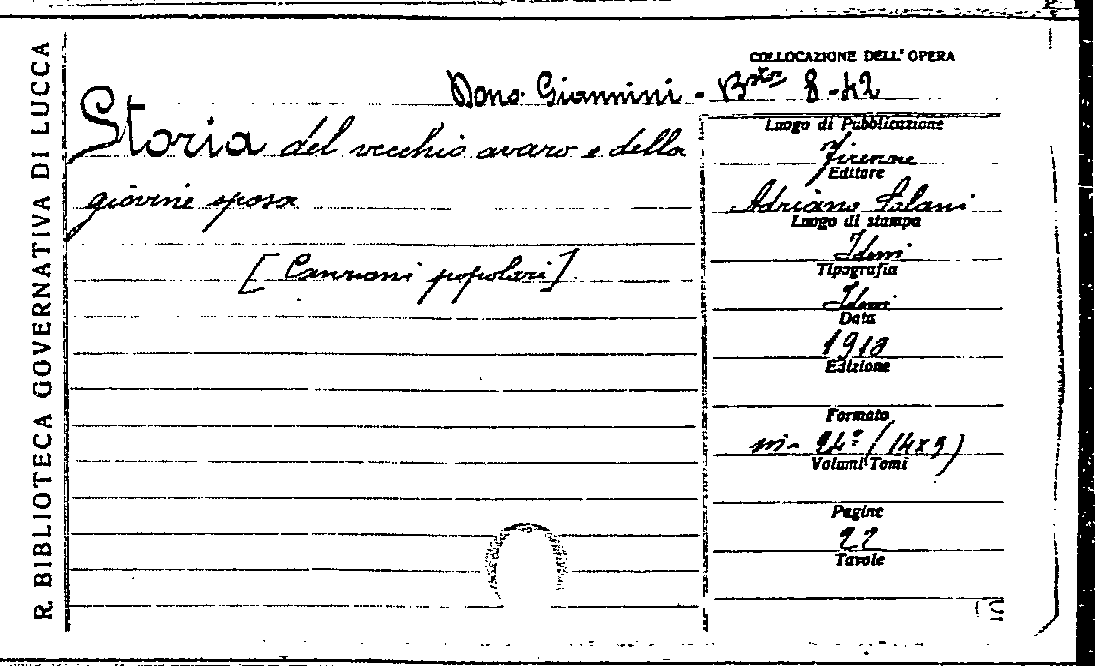 R. BIBLIOTECA GOVERNATIVA DI LUCCA
COLLOCAZIONE DELL' OPERA
Dono Giannini - Bta 8-42
Storia del vecchio avaro e della
giovine sposa
[Canzoni popolari]
Luogo di Pubblicazione
Firenze
Editore
Adriano Salani
Luogo di stampa
Idem
Tipografia
Idem
Data
1913
Edizione
Formato
in-24° (14x9)
Volumi Tomi
Pagine
22
Tavole